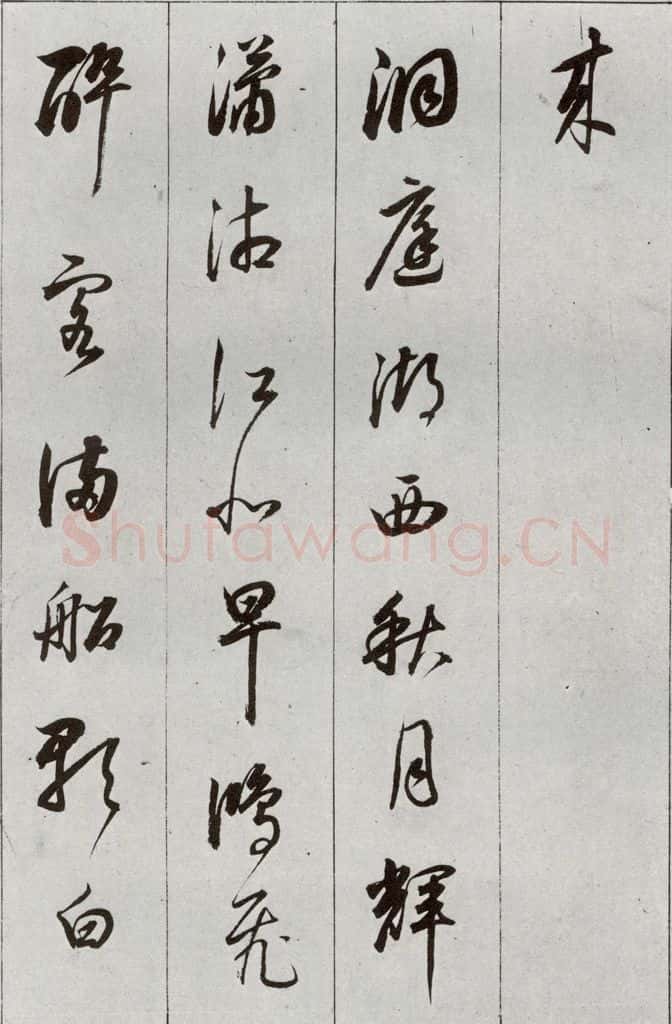 来
洞庭湖西秋月辉
潇湘江北早鸿飞
醉客满船歌白
Shufawang.CN